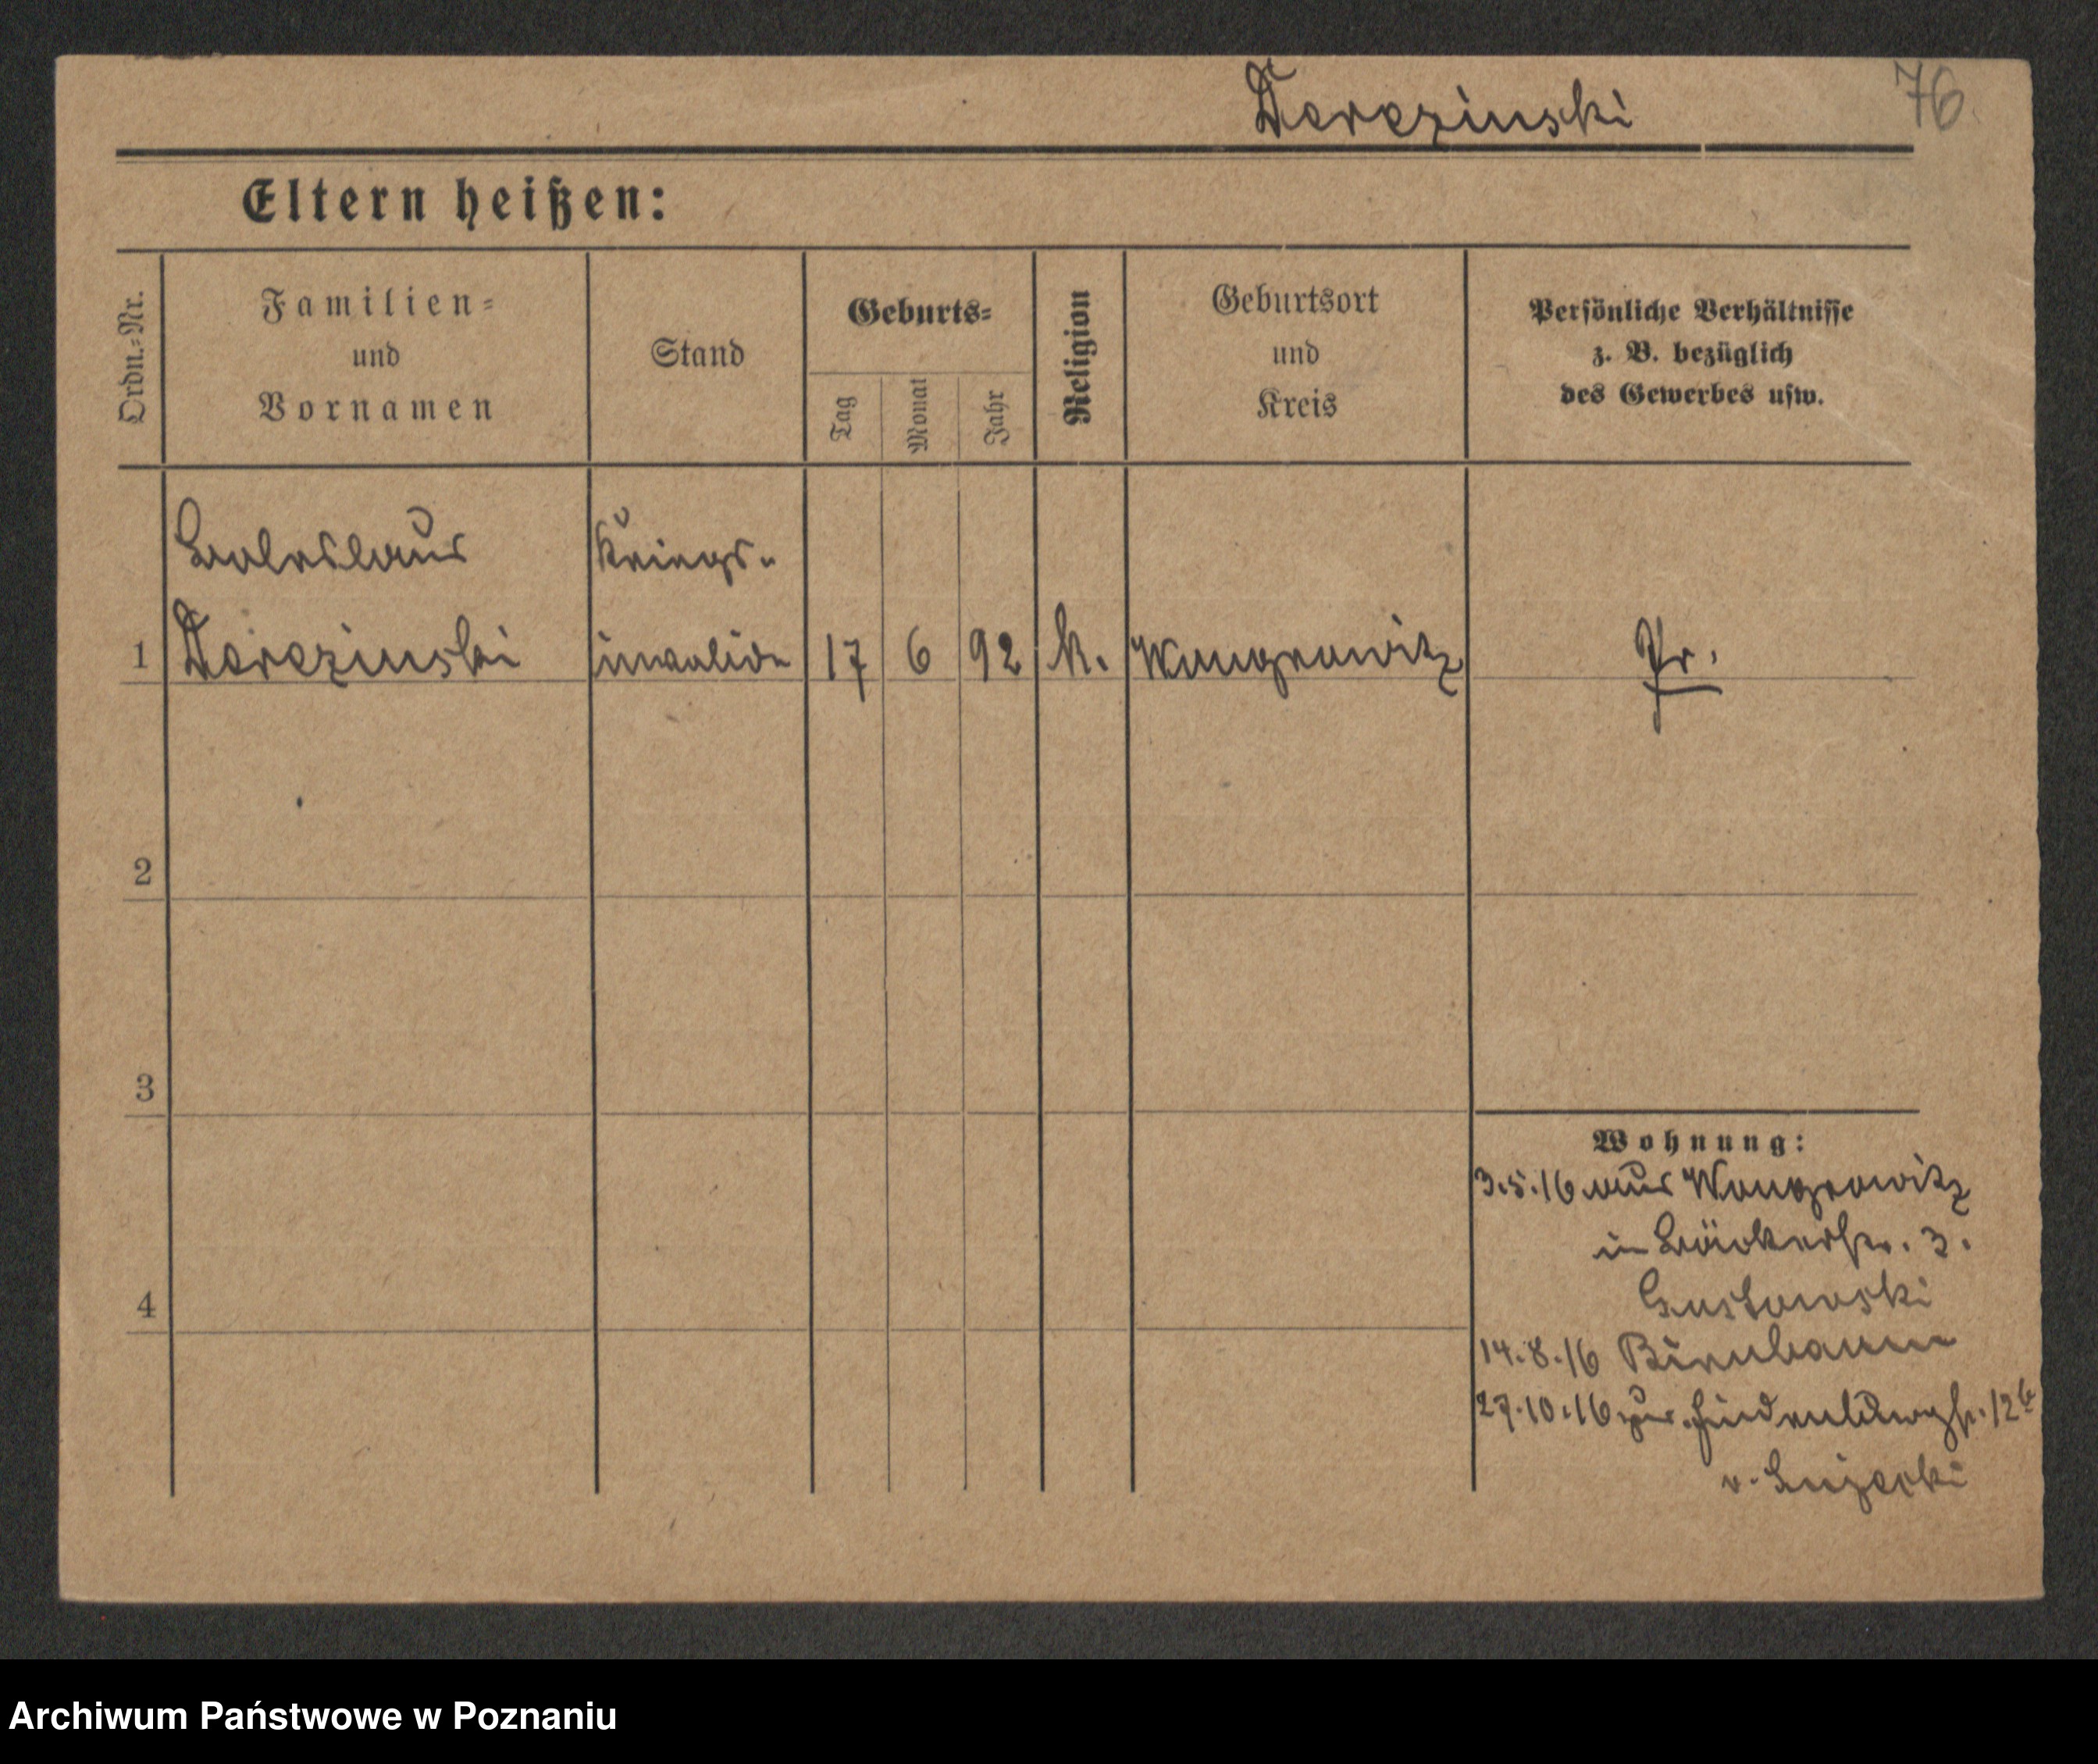 Derezinski
76.
Eltern heißen:
Ordn.-Nr.
Familien- und Vornamen
Stand
Geburts-
Tag
Monat
Jahr
Religion
Geburtsort und Kreis
Persönliche Verhältnisse
z. B. bezüglich
des Gewerbes usw.
Boleslaus
Kriegs-
1 Derezinski invalide 17 6 92 k. Wongrowitz Pr.
2
3
4
Wohnung:
3.5.16 aus Wongrowitz
in Bäckerstr. 3.
Gustowski
14.8.16 Birnbaum
27.10.16 zur. Hindenburgstr. 12b
v.
Archiwum Państwowe w Poznaniu